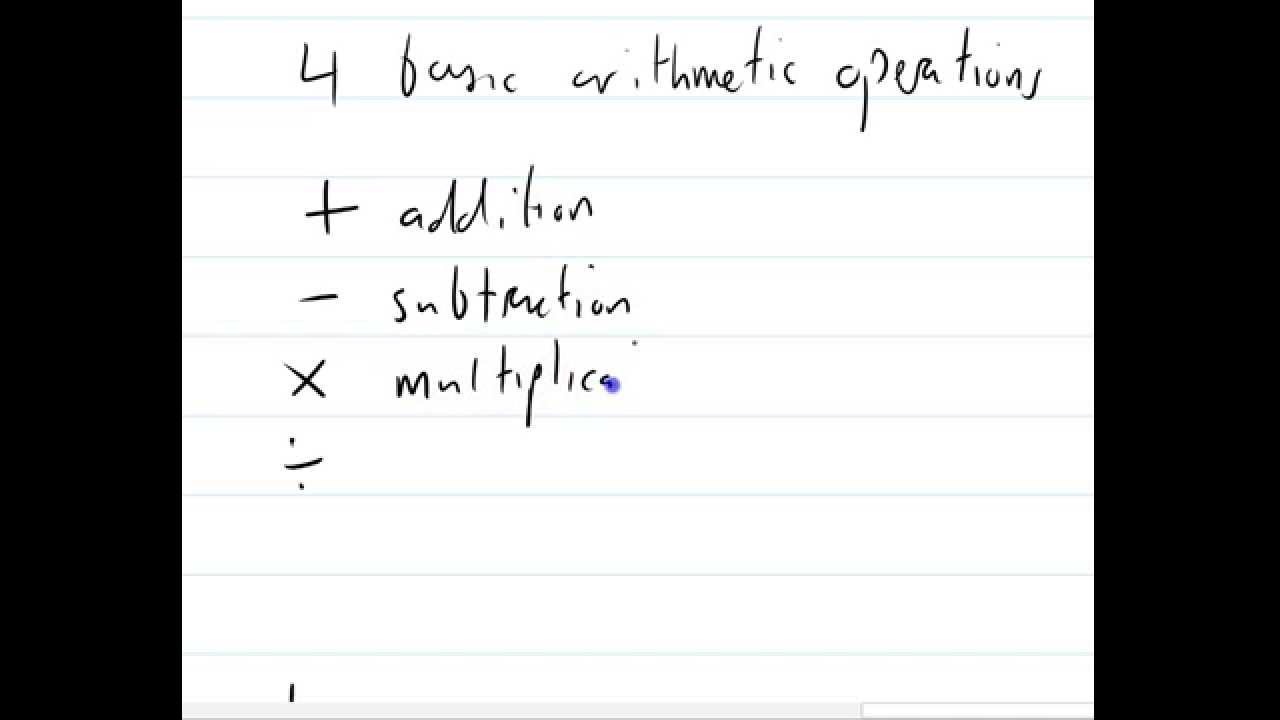 4 basic arithmetic operations
+ addition
- subtraction
× multiplica
÷